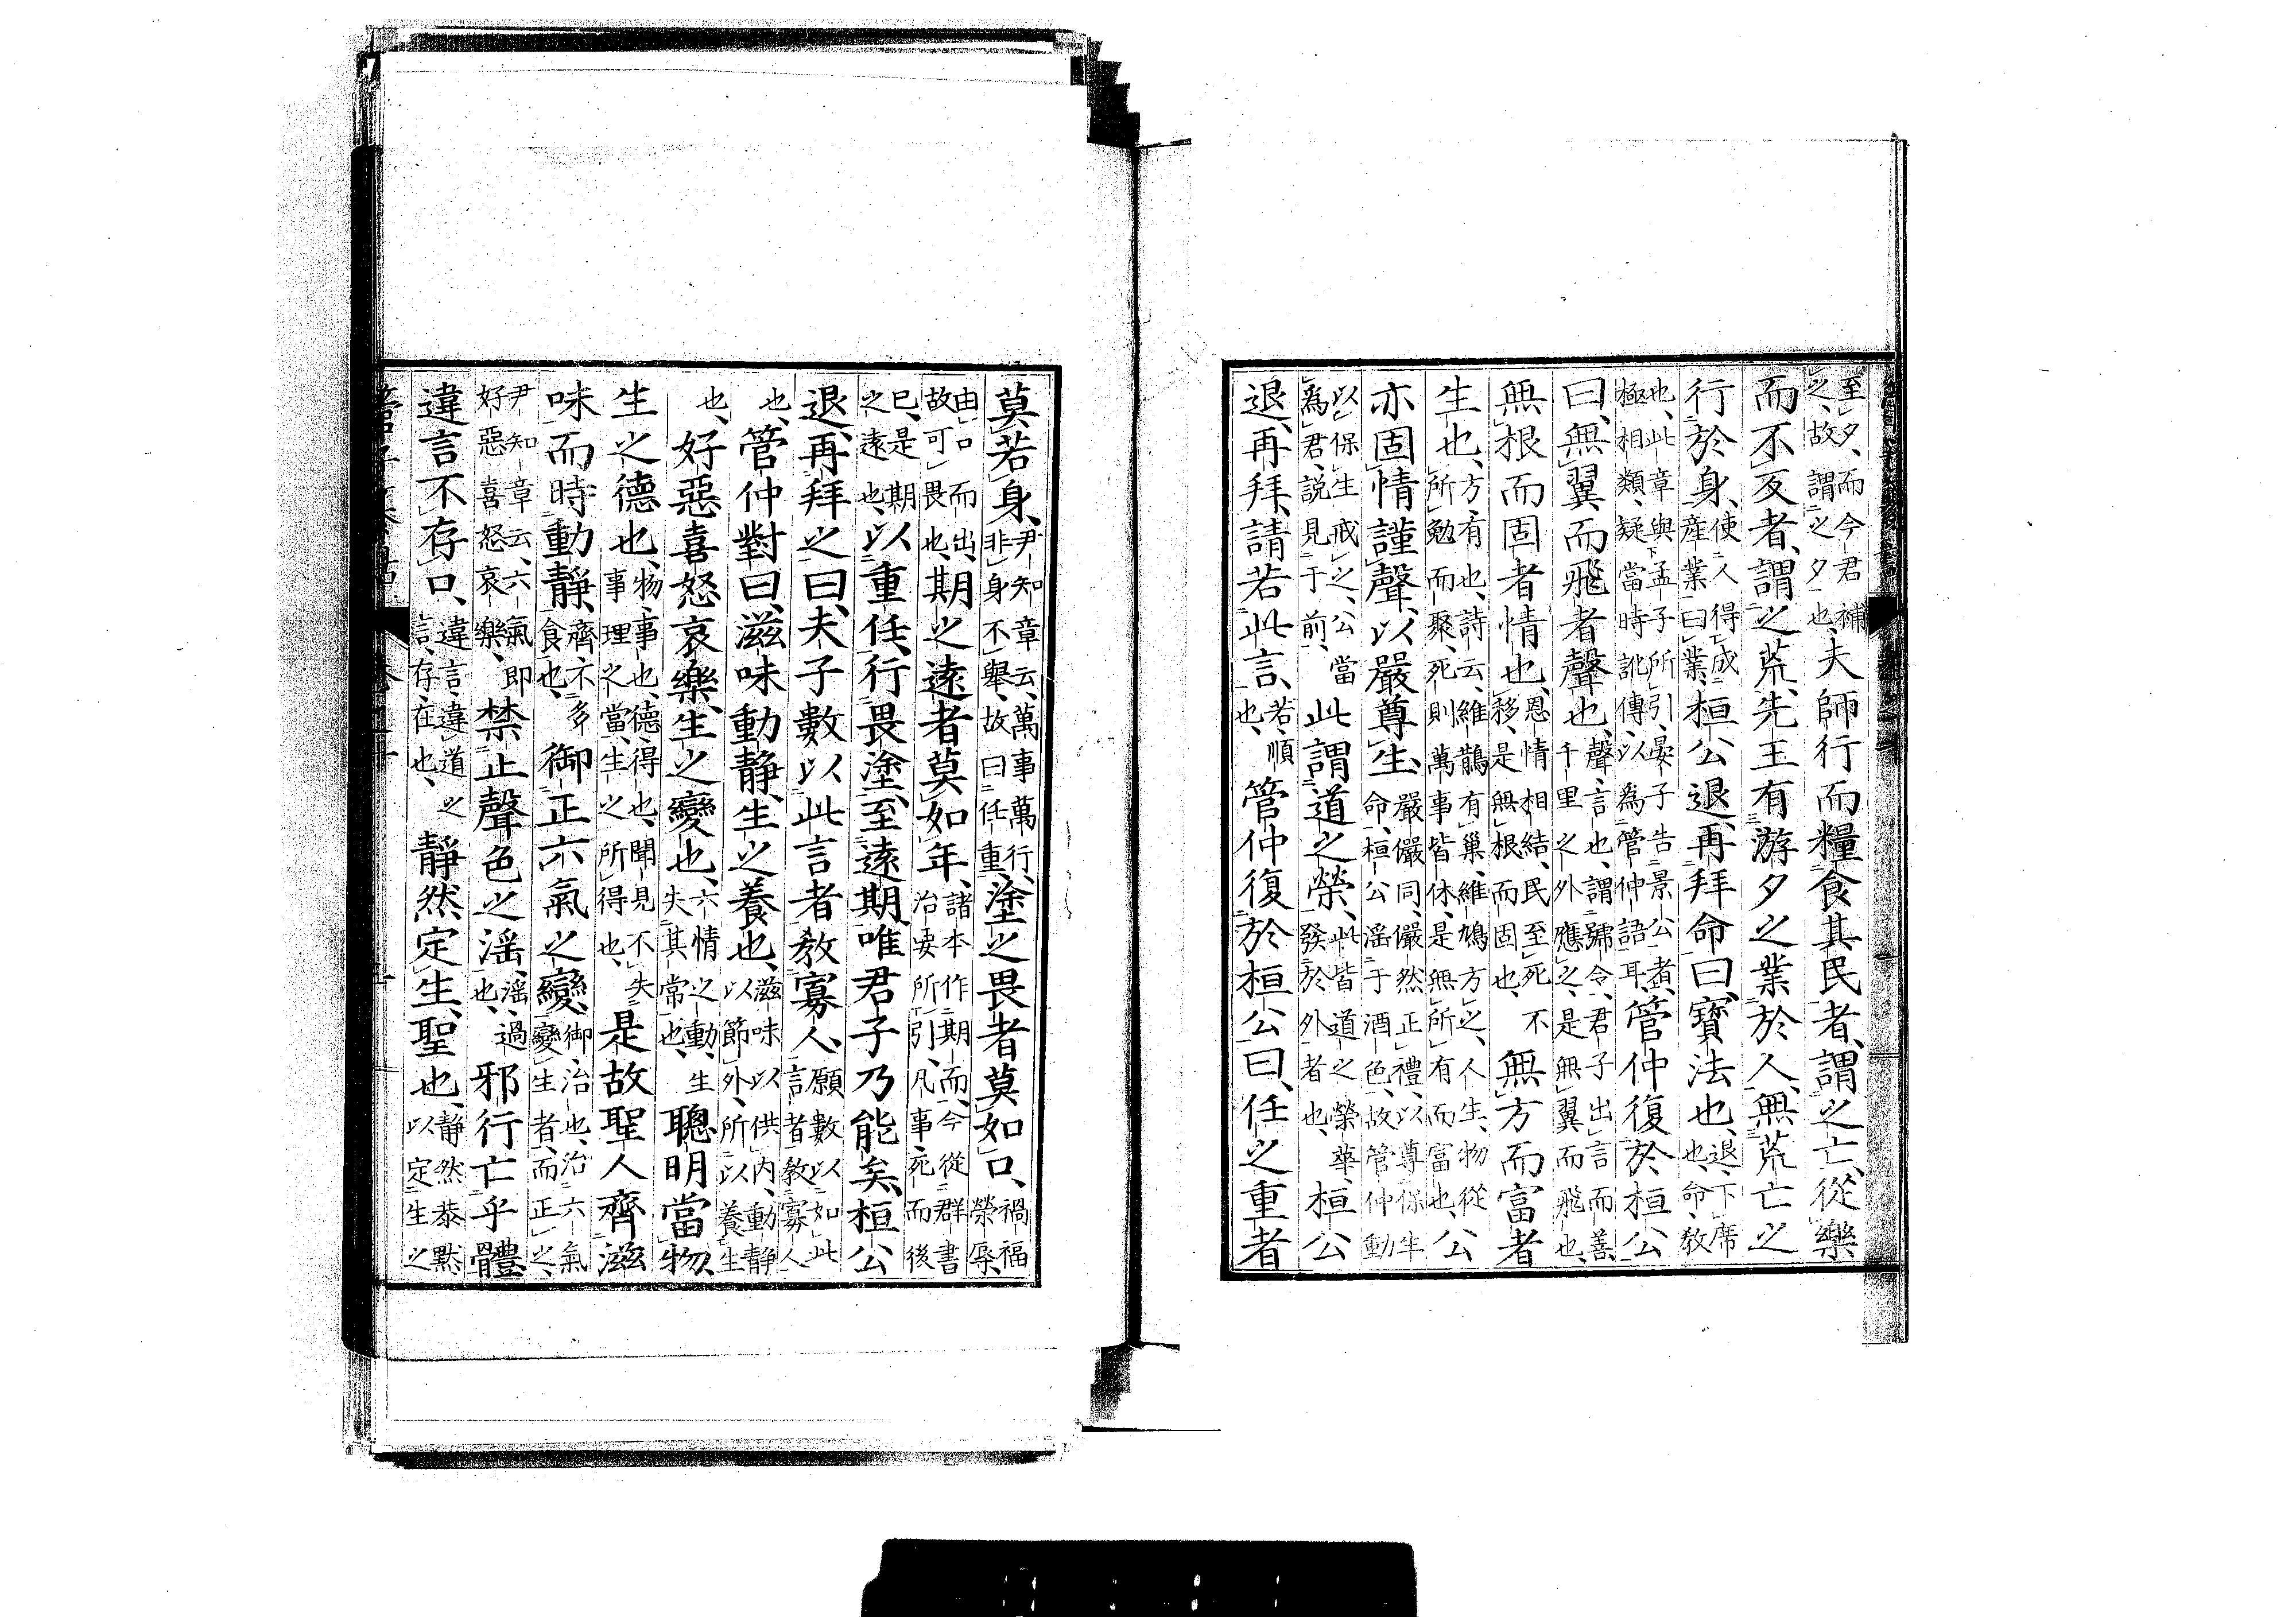 至夕、而今君補之、故謂之夕也、夫師行而糧食其民者、謂之亡、從樂
而不反者、謂之荒、先王有游夕之業於人、無荒亡之
行於身、使人得成產業曰業、桓公退、再拜命曰、寶法也、退、下席也、命、教
也、此章與孟子所引、晏子告景公者、極相類、疑當時訛傳、以為管仲語耳、管仲復於桓公
曰、無翼而飛者聲也、聲、言也、謂號令、君子出言而善、千里之外應之、是無翼而飛也、
無根而固者情也、恩情相結、民至死不移、是無根而固也、無方而富者
生也、方、有也、詩云、維鵲有巢、維鳩方之、人生、物從所勉而聚、死則萬事皆休、是無所有而富也、公
亦固情謹聲、以嚴尊生、嚴儼同、儼然正禮、以尊保生命、桓公滛于酒色、故管仲動
以保生戒之、公當為君、說見于前、此謂道之榮、此皆道之榮華發於外者也、桓公
退、再拜、請若此言、若、順也、管仲復於桓公曰、任之重者
莫若身、尹知章云、萬事萬行、非身不舉、故曰任重、塗之畏者莫如口、禍福榮辱、
由口而出、故可畏也、期之遠者莫如年、諸本作期而、今從群書治要所引、凡事死而後
已、是期之遠也、以重任、行畏塗、至遠期、唯君子乃能矣、桓公
退、再拜之曰、夫子數以此言者教寡人、願數以如此言者教寡人
也、管仲對曰、滋味動靜、生之養也、滋味以供內、動靜以節外、所以養生
也、好惡喜怒哀樂、生之變也、六情之動、生失其常也、聰明當物、
生之德也、物、事也、德、得也、聞見不失事理之當、生之所得也、是故聖人齊滋
味而時動靜、齊、不多食也、御正六氣之變、御、治也、治六氣變生者、而正之、
尹知章云、六氣即好惡喜怒哀樂、禁止聲色之滛、滛、過也、邪行亡乎體
違言不存口、違言、違道之言、存、在也、靜然定生、聖也、靜然恭默以定生之